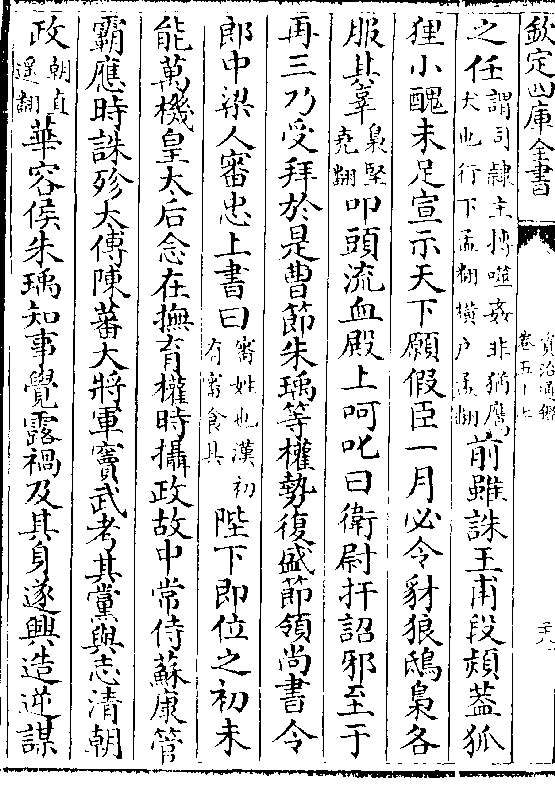 欽定四庫全書
資治通鑑
卷五十七
之任謂司隸主搏噬姦非猶鷹犬也行下孟翻橫户孟翻前雖誅王甫段熲蓋狐
狸小醜未足宣示天下願假臣一月必令豺狼鴟梟各
服其辜梟堅堯翻叩頭流血殿上呵叱曰衛尉扞詔邪至于
再三乃受拜於是曹節朱瑀等權勢復盛節領尚書令
郎中梁人審忠上書曰審姓也漢初有審食其陛下即位之初未
能萬機皇太后念在撫育權時攝政故中常侍蘇康管
霸應時誅殄太傅陳蕃大將軍竇武考其黨與志清朝
政朝直遥翻華容侯朱瑀知事覺露禍及其身遂興造逆謀